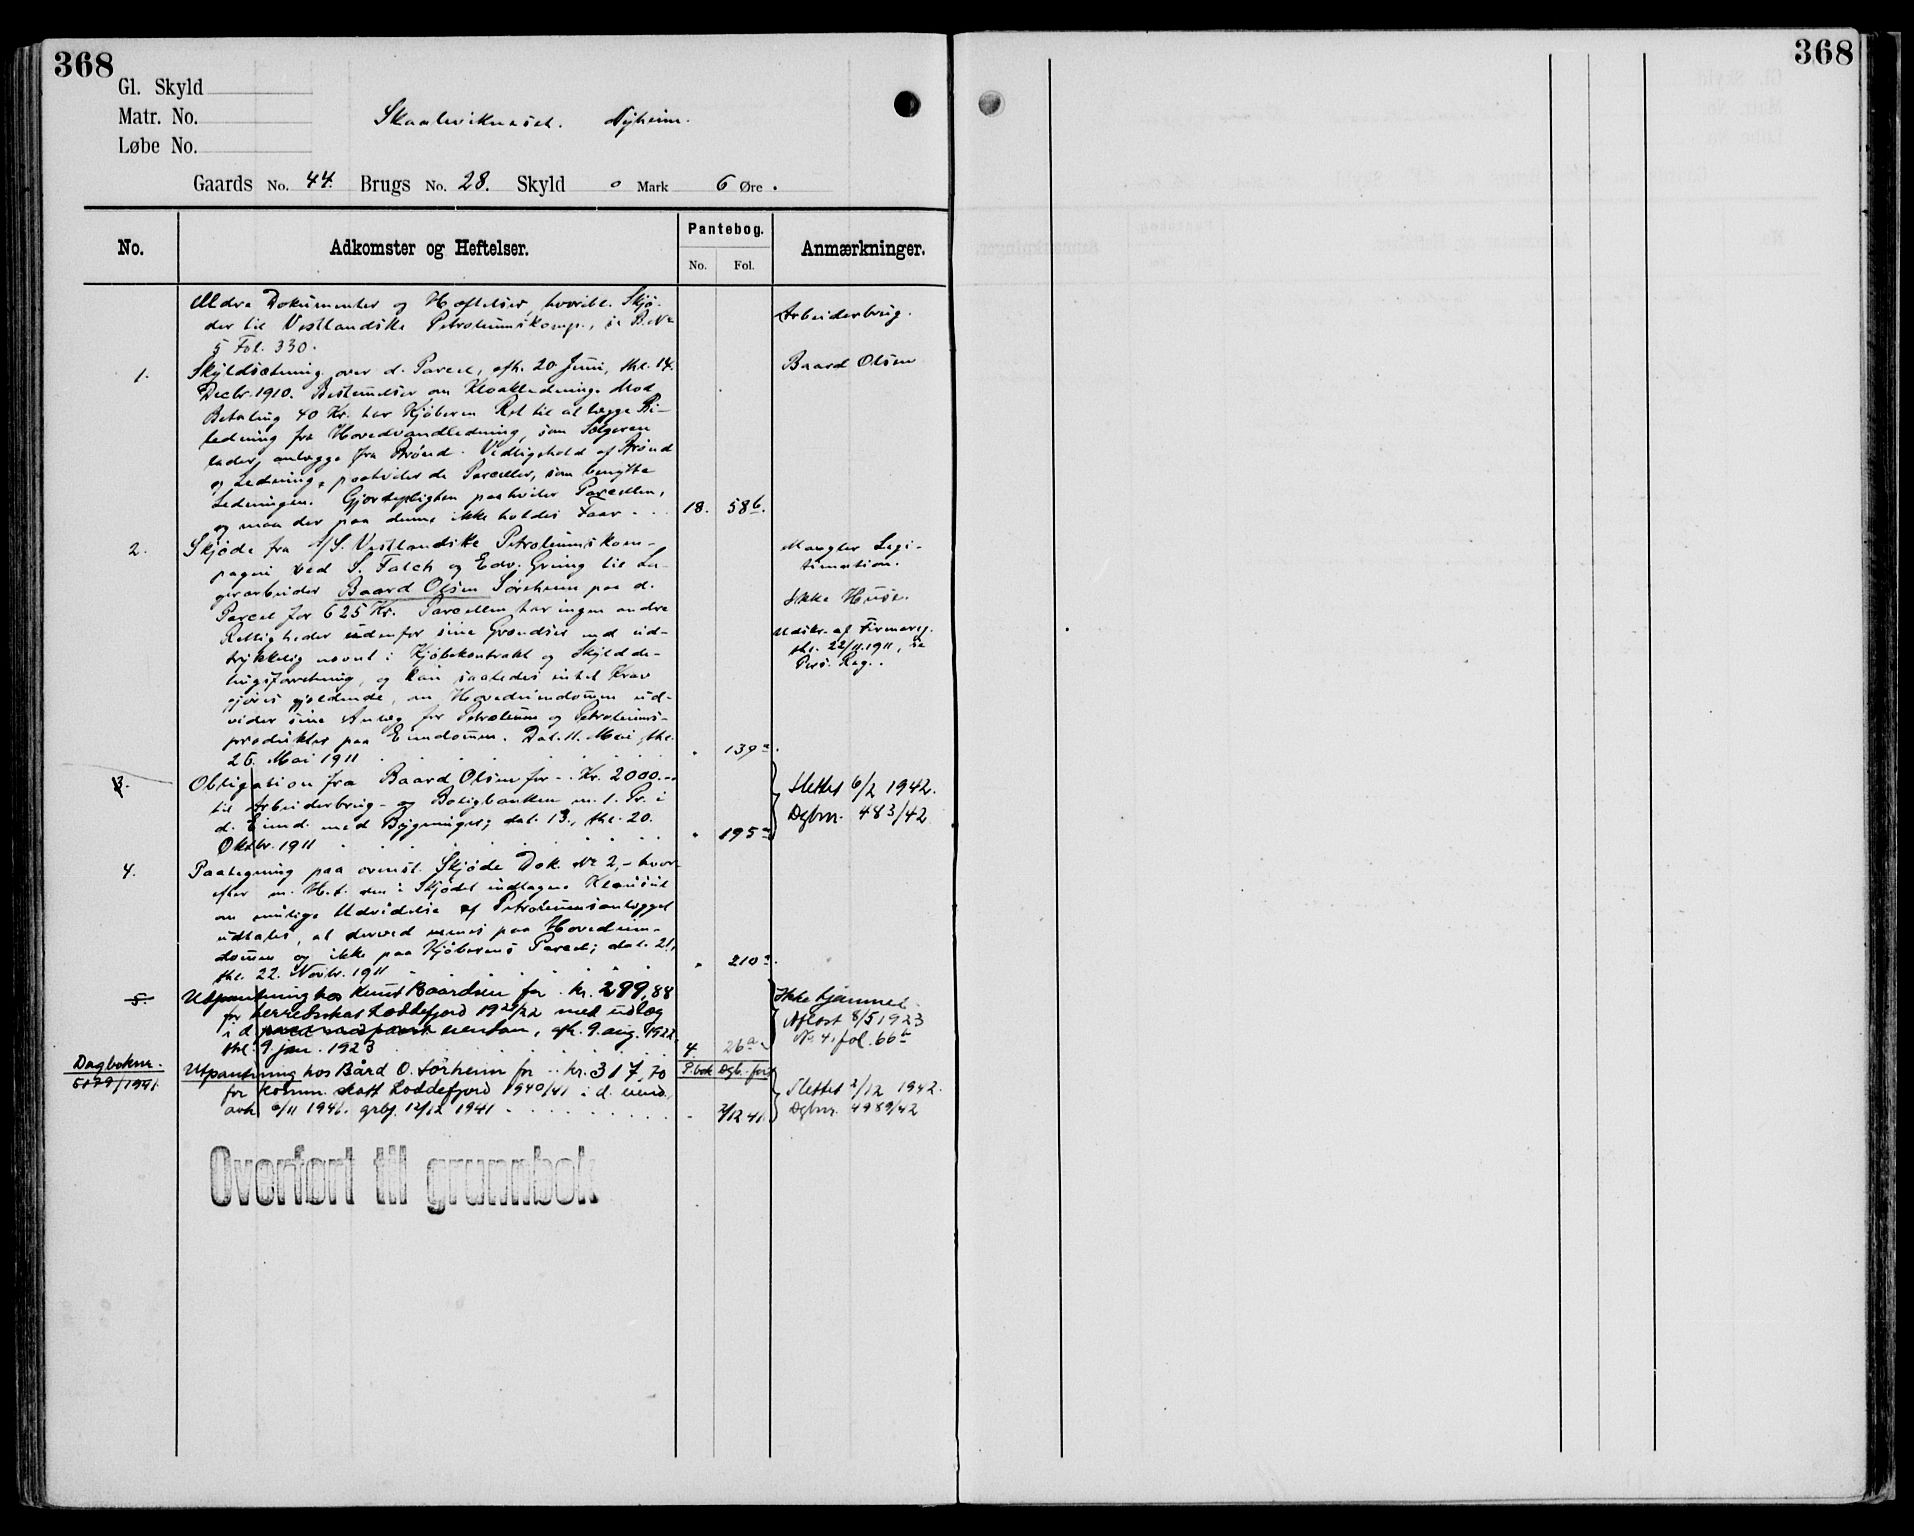 368
368
Gl. Skyld
Matr. No.
Løbe No.
Skaaleviknæset. Nyheim.
Gaards No. 44. Brugs No. 28. Skyld 0 Mark 6 Øre.
No.
Adkomster og Heftelser.
Pantebog.
No. Fol.
Anmærkninger.
Ældre Dokumenter og Hæftelser, hvoribl. Skjø-
der til Vestlandske Petroleumskomp., se B. No
5 Fol. 330.
Arbeiderbrug.
1. Skyldsætning over d. Parcel, afh. 20 Juni, thl. 14.
Decbr. 1910. Bestemmelser om Kloakledning. Mod
Betaling 40 Kr. har Kjøberen Ret til at lægge Bi-
ledning fra Hovedvandledning, som Sælgeren
lader anlægge fra Brønd. Vedligehold af Brønd
og Ledning paahviler de Parceller, som benytte
Ledningen. Gjerdepligten paahviler Parcellen,
og maa der paa denne ikke holdes Faar. 18. 586.
Baard Olsen
2. Skjøde fra A/S. Vestlandske Petroleumskom-
pagni ved S. Falch og Edv. Grung til La-
gerarbeider Baard Olsen Sørheim paa d.
Parcel for 625 Kr. Parcellen har ingen andre
Rettigheder udenfor sine Grændser end ud-
trykkelig nævnt i Kjøbekontrakt og Skyldde-
lingsforretning, og kan saaledes intet Krav
gjøres gjældende, om Hovedeiendommen ud-
vider sine Anlæg for Petroleum og Petroleums-
produkter paa Eiendommen. Dat. 11. Mai, thl.
26. Mai 1911 " 139a.
Mangler Legi-
timation.
Ikke Huse.
Udskr. af Firmareg.
thl. 22/11.1911, se
Pers. Reg.
3. Obligation fra Baard Olsen for Kr. 2000.-
til Arbeiderbrug- og Boligbanken m. 1. Pr. i
d. Eiend. med Bygninger; dat. 13., thl. 20.
Oktbr. 1911 " 195a
Slettet 6/2 1942.
Dgbnr. 483/42
4. Paategning paa ovenst. Skjøde Dok. No 2, - hvor-
efter m. H. t. den i Skjødet indtagne Klausul
om mulige Udvidelse af Petroleumsanlægget
udtales, at derved menes paa Hovedeien-
dommen og ikke paa Kjøberens Parcel; dat. 21,
thl. 22. Novbr. 1911 " 210a.
5. Utpantning hos Knut Baardsen for kr. 299,88
for herredsskat Laddefjord 1921/22 med udlæg
i d. eiendom, afh. 9. aug. 1922,
thl. 9. jan. 1923 4. 26a
Ikke hjemmel.
Aflæst 8/5 1923
No 4, fol. 66b
Dagboknr.
5179/1941.
Utpantning hos Bård O. Sørheim for kr. 317,70
for komm. skatt Laddefjord 1940/41 i d. eiend.
avh. 6/11 1941. grbf. 12/12 1941
P.bok Dgb. ført
" 2/12 41.
Slettet 2/12 1942.
Dgbnr. 4989/42
Overført til grunnbok